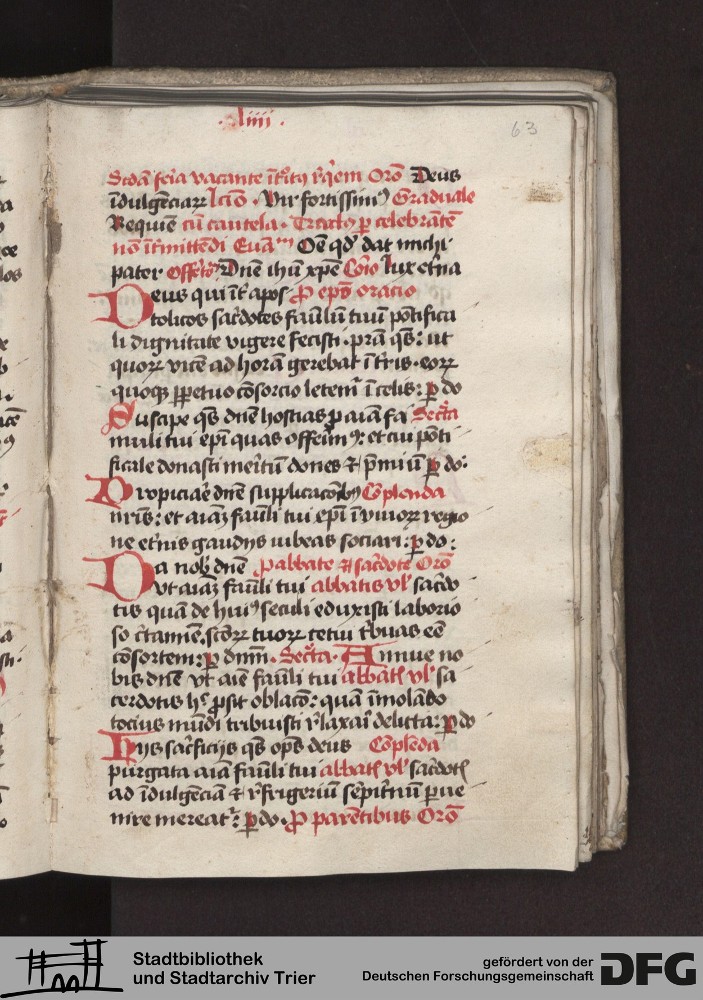 ·liiii·
63
Scdā feria vacante īt͛oitꝰ rꝗ̄em Oro͞ Deus
īdulgēciaꝝ lcio͞ · Vir fortissimꝰ Graduale
Requiē cū cautela · Tractꝰ ꝑ celebrātē
no͞ īt͛mittēdi Euāᵐ Om̄e qd' dat michi
pater Offrͭoꝰ Dn̄e ihū xp̄e Co͞io Lux et͛na
Deus qui īt͛ apos Pro ep̄o oratio
tolicos sac͛dotes famlm̄ tuū pōtifica
li dignitate vigere fecisti · p̄ra qs̄: ut
quoꝝ vicē ad horā gerebat īt͛ris · eoꝝ
quoqꝫ ꝑpetuo cōsorcio letetᷣ ī celis: ꝑ do
Suscipe qs̄ dn̄e hostias ꝓ aīa fa Sec͛ta
muli tui ep̄i quas offerimꝰ: et cui pōti
ficale donasti meritū dones ⁊ p̄miū ꝑ do:
Propiciaͬe dn̄e supplicacōibꝰ Cōplenda
nr̄is: et aīaꝫ famli tui ep̄i ī viuoꝝ regio
ne et͛nis gaudijs iubeas sociari: ꝑ do:
Da nob dn̄e ꝓ abbate ⁊ sac͛dote Oro͞
Vt aīaꝫ famli tui abbatis vl' sac͛do
tis quā de huiꝰ seculi eduxisti laborio
so c͛tamīe · scōꝝ tuoꝝ tetui t͛buas eē
cōsortem: ꝑ dnm̄ · Sec͛ta · Annue no
bis dn̄e vt aīe famli tui abbatꝭ vl' sa
cerdotis hꝭ ꝓsit oblaco͞: quā īmolādo
tocius mūdi tribuisti r͛laxari delicta: ꝑ do
Hijs sac͛ficijs qs̄ op̄s deus Cōpleda
purgata aīa famli tui abbatꝭ vl' sac͛dotꝭ
ad īdulgēciā ⁊ r͛frigeriū sepit͛nū ꝑue
nire mereatᷣ: ꝑ do · Pro parētibus Oro͞
Stadtbibliothek
und Stadtarchiv Trier
gefördert von der
Deutschen Forschungsgemeinschaft
DFG